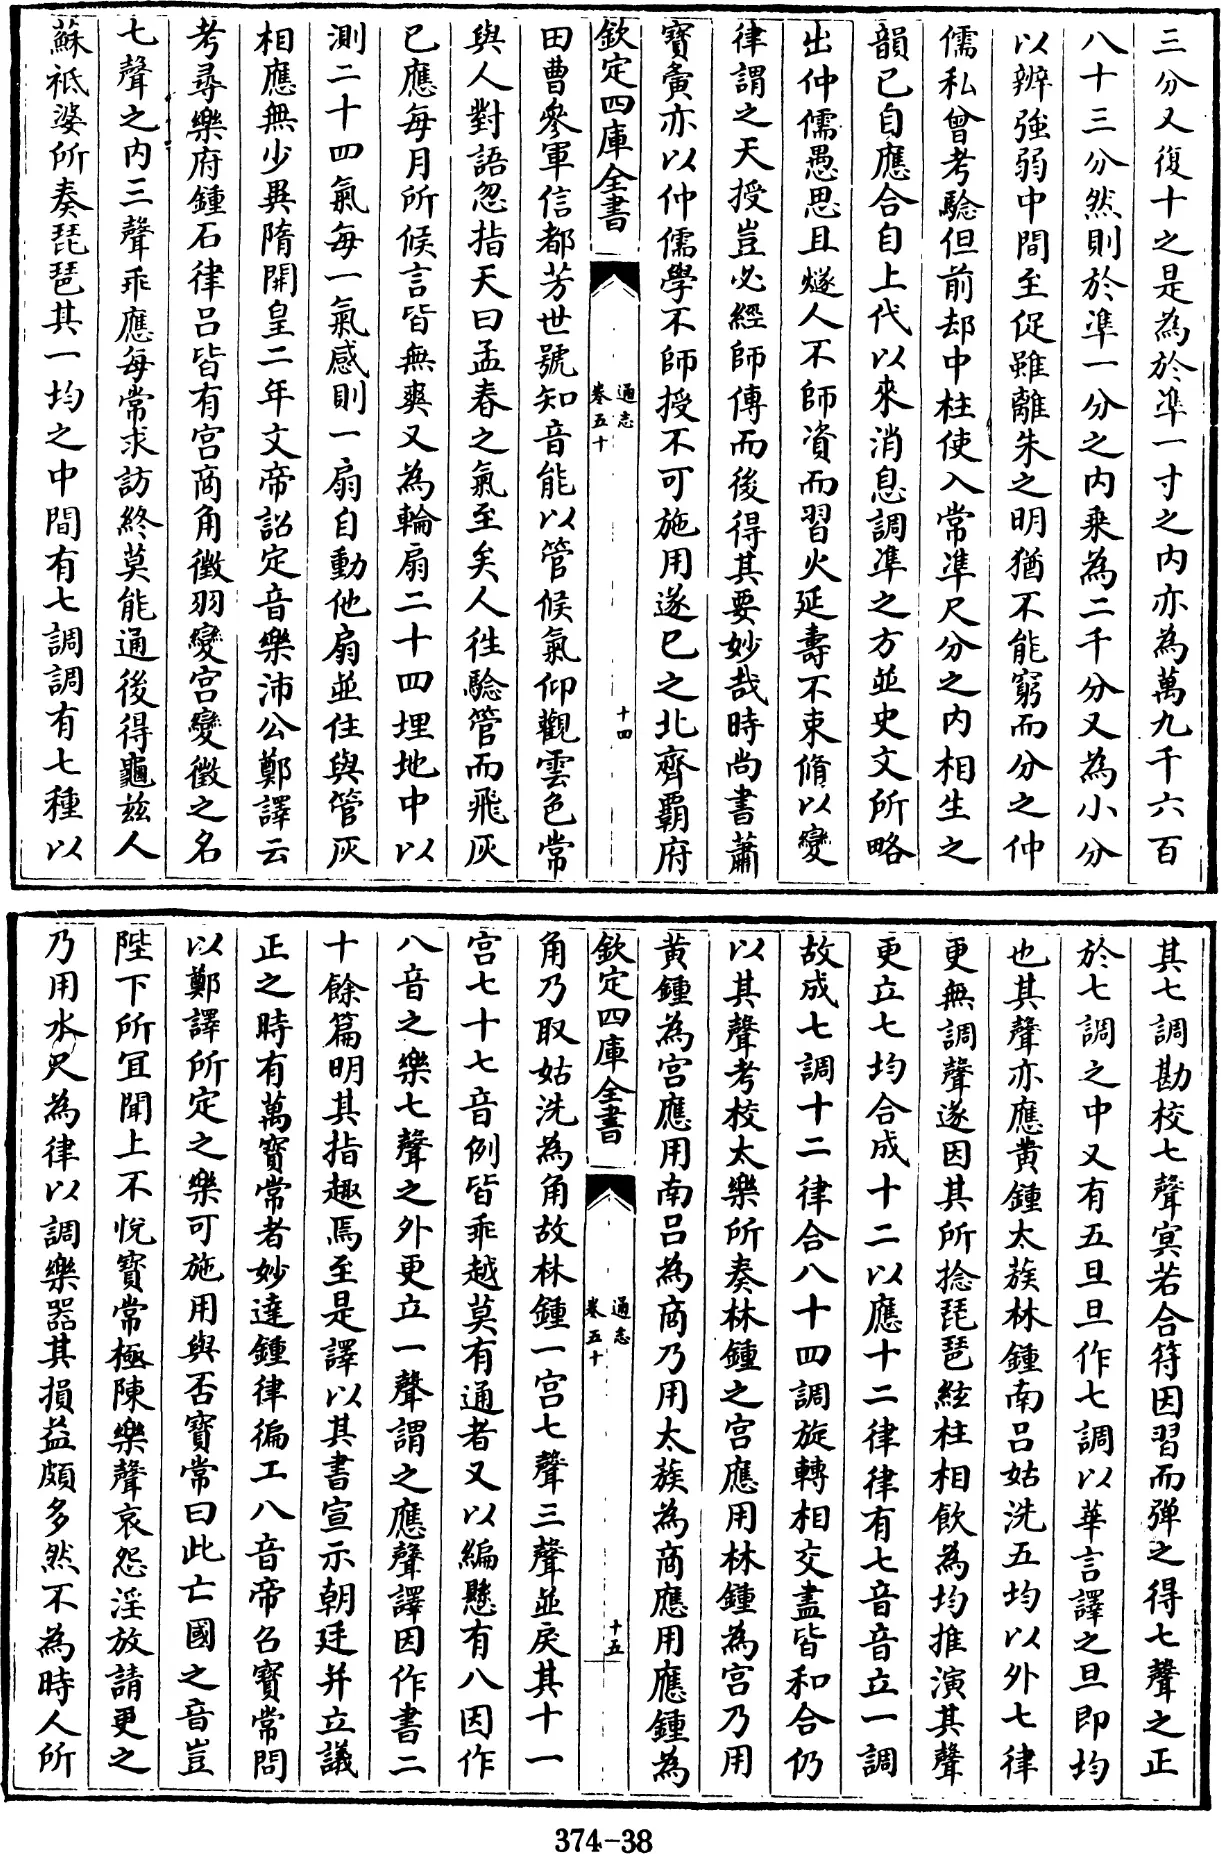 三分又復十之是為於準一寸之内亦為萬九千六百
八十三分然則於準一分之内乗為二千分又為小分
以辨強弱中間至促雖離朱之明猶不能窮而分之仲
儒私曾考驗但前却中柱使入常準尺分之内相生之
韻已自應合自上代以來消息調準之方並史文所略
出仲儒愚思且燧人不師資而習火延壽不束脩以變
律謂之天授豈必經師傳而後得其要妙哉時尚書蕭
寶夤亦以仲儒學不師授不可施用遂已之北齊覇府
欽定四庫全書
通志
卷五十
十四
田曹參軍信都芳世號知音能以管候氣仰觀雲色常
與人對語忽指天曰孟春之氣至矣人徃驗管而飛灰
已應每月所候言皆無爽又為輪扇二十四埋地中以
測二十四氣每一氣感則一扇自動他扇並住與管灰
相應無少異隋開皇二年文帝詔定音樂沛公鄭譯云
考尋樂府鍾石律吕皆有宫商角徵羽變宫變徵之名
七聲之内三聲乖應每常求訪終莫能通後得龜兹人
蘇祇婆所奏琵琶其一均之中間有七調調有七種以
其七調勘校七聲冥若合符因習而彈之得七聲之正
於七調之中又有五旦旦作七調以華言譯之旦即均
也其聲亦應黄鍾太蔟林鍾南吕姑洗五均以外七律
更無調聲遂因其所捻琵琶絃柱相飲為均推演其聲
更立七均合成十二以應十二律律有七音音立一調
故成七調十二律合八十四調旋轉相交盡皆和合仍
以其聲考校太樂所奏林鍾之宫應用林鍾為宫乃用
黄鍾為宫應用南吕為商乃用太蔟為商應用應鍾為
欽定四庫全書
通志
卷五十
十五
角乃取姑洗為角故林鍾一宫七聲三聲並戾其十一
宫七十七音例皆乖越莫有通者又以編懸有八因作
八音之樂七聲之外更立一聲謂之應聲譯因作書二
十餘篇明其指趣焉至是譯以其書宣示朝廷并立議
正之時有萬寶常者妙達鍾律徧工八音帝召寶常問
以鄭譯所定之樂可施用與否寶常曰此亡國之音豈
陛下所宜聞上不悦寶常極陳樂聲哀怨淫放請更之
乃用水尺為律以調樂器其損益頗多然不為時人所
374-38